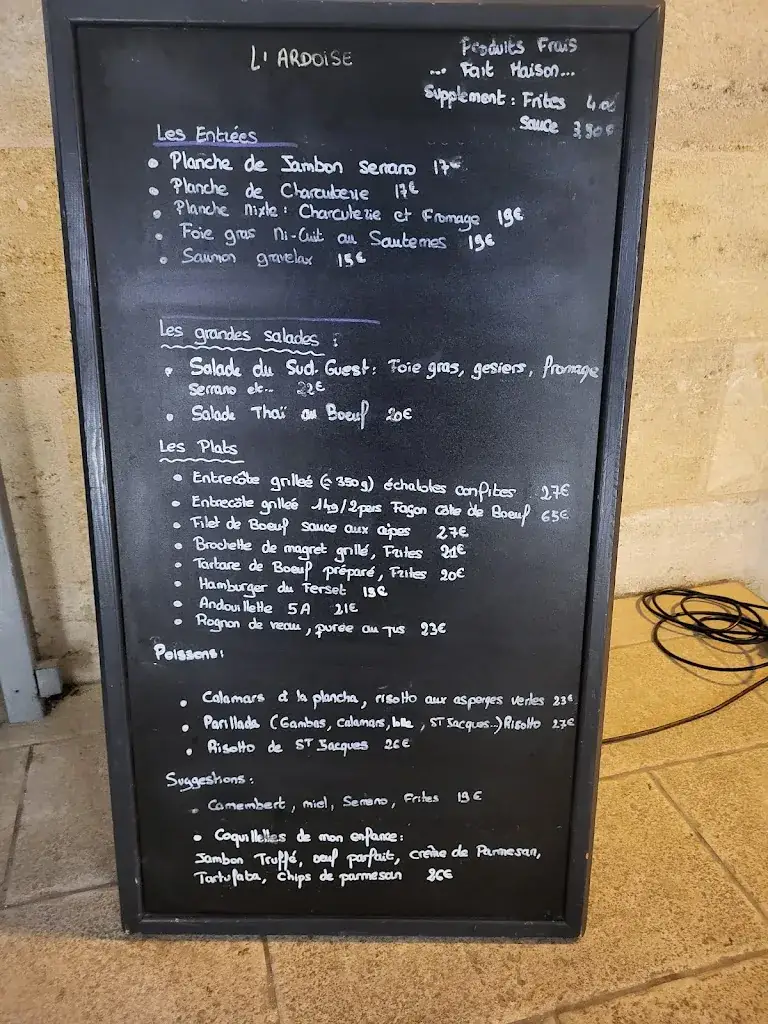 L'ARDOISE
Produits Frais
... Fait Maison...
Supplement : Frites 4.00
Sauce 3,50€
Les Entrées
• Planche de Jambon serrano 17€
• Planche de Charcuterie 17€
• Planche Mixte : Charcuterie et Fromage 19€
• Foie gras Mi-Cuit au Sauternes 19€
• Saumon gravelax 15€
Les grandes salades :
• Salade du Sud-Ouest : Foie gras, gesiers, fromage
serrano etc... 22€
• Salade Thaï au Boeuf 20€
Les Plats
• Entrecôte grillée (≈ 350g) échalotes confites 27€
• Entrecôte grillée 1kg/2pers Façon côte de Boeuf 65€
• Filet de Boeuf sauce aux cèpes 27€
• Brochette de magret grillé, Frites 21€
• Tartare de Boeuf préparé, Frites 20€
• Hamburger du Ferset 19€
• Andouillette 5A 21€
• Rognon de veau, purée au Jus 23€
Poissons :
• Calamars à la plancha, risotto aux asperges vertes 23€
• Parillada (Gambas, calamars, , ST Jacques...) Risotto 27€
• Risotto de ST Jacques 26€
Suggestions :
• Camembert, miel, Serrano, Frites 19€
• Coquillettes de mon enfance :
Jambon Truffé, oeuf parfait, crème de Parmesan,
Tartufata, Chips de parmesan 26€